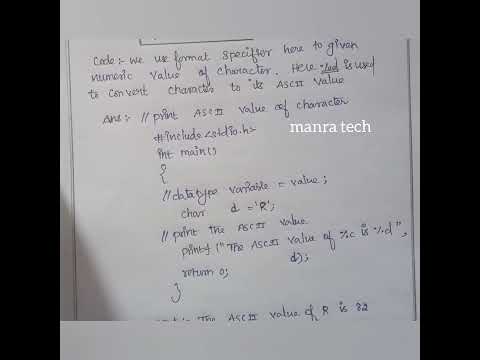 Code:- we use format specifier here to given
numeric value of character. Here %d is used
to convent character to its ASCII value
Ans:- // print ASCII value of character
#include<stdio.h>
manra tech
int main()
{
// datatype variable = value;
char d = 'R';
// print the ASCII value
printf ("The ASCII value of %c is %d",
d);
return 0;
}
The ASCII value of R is 82